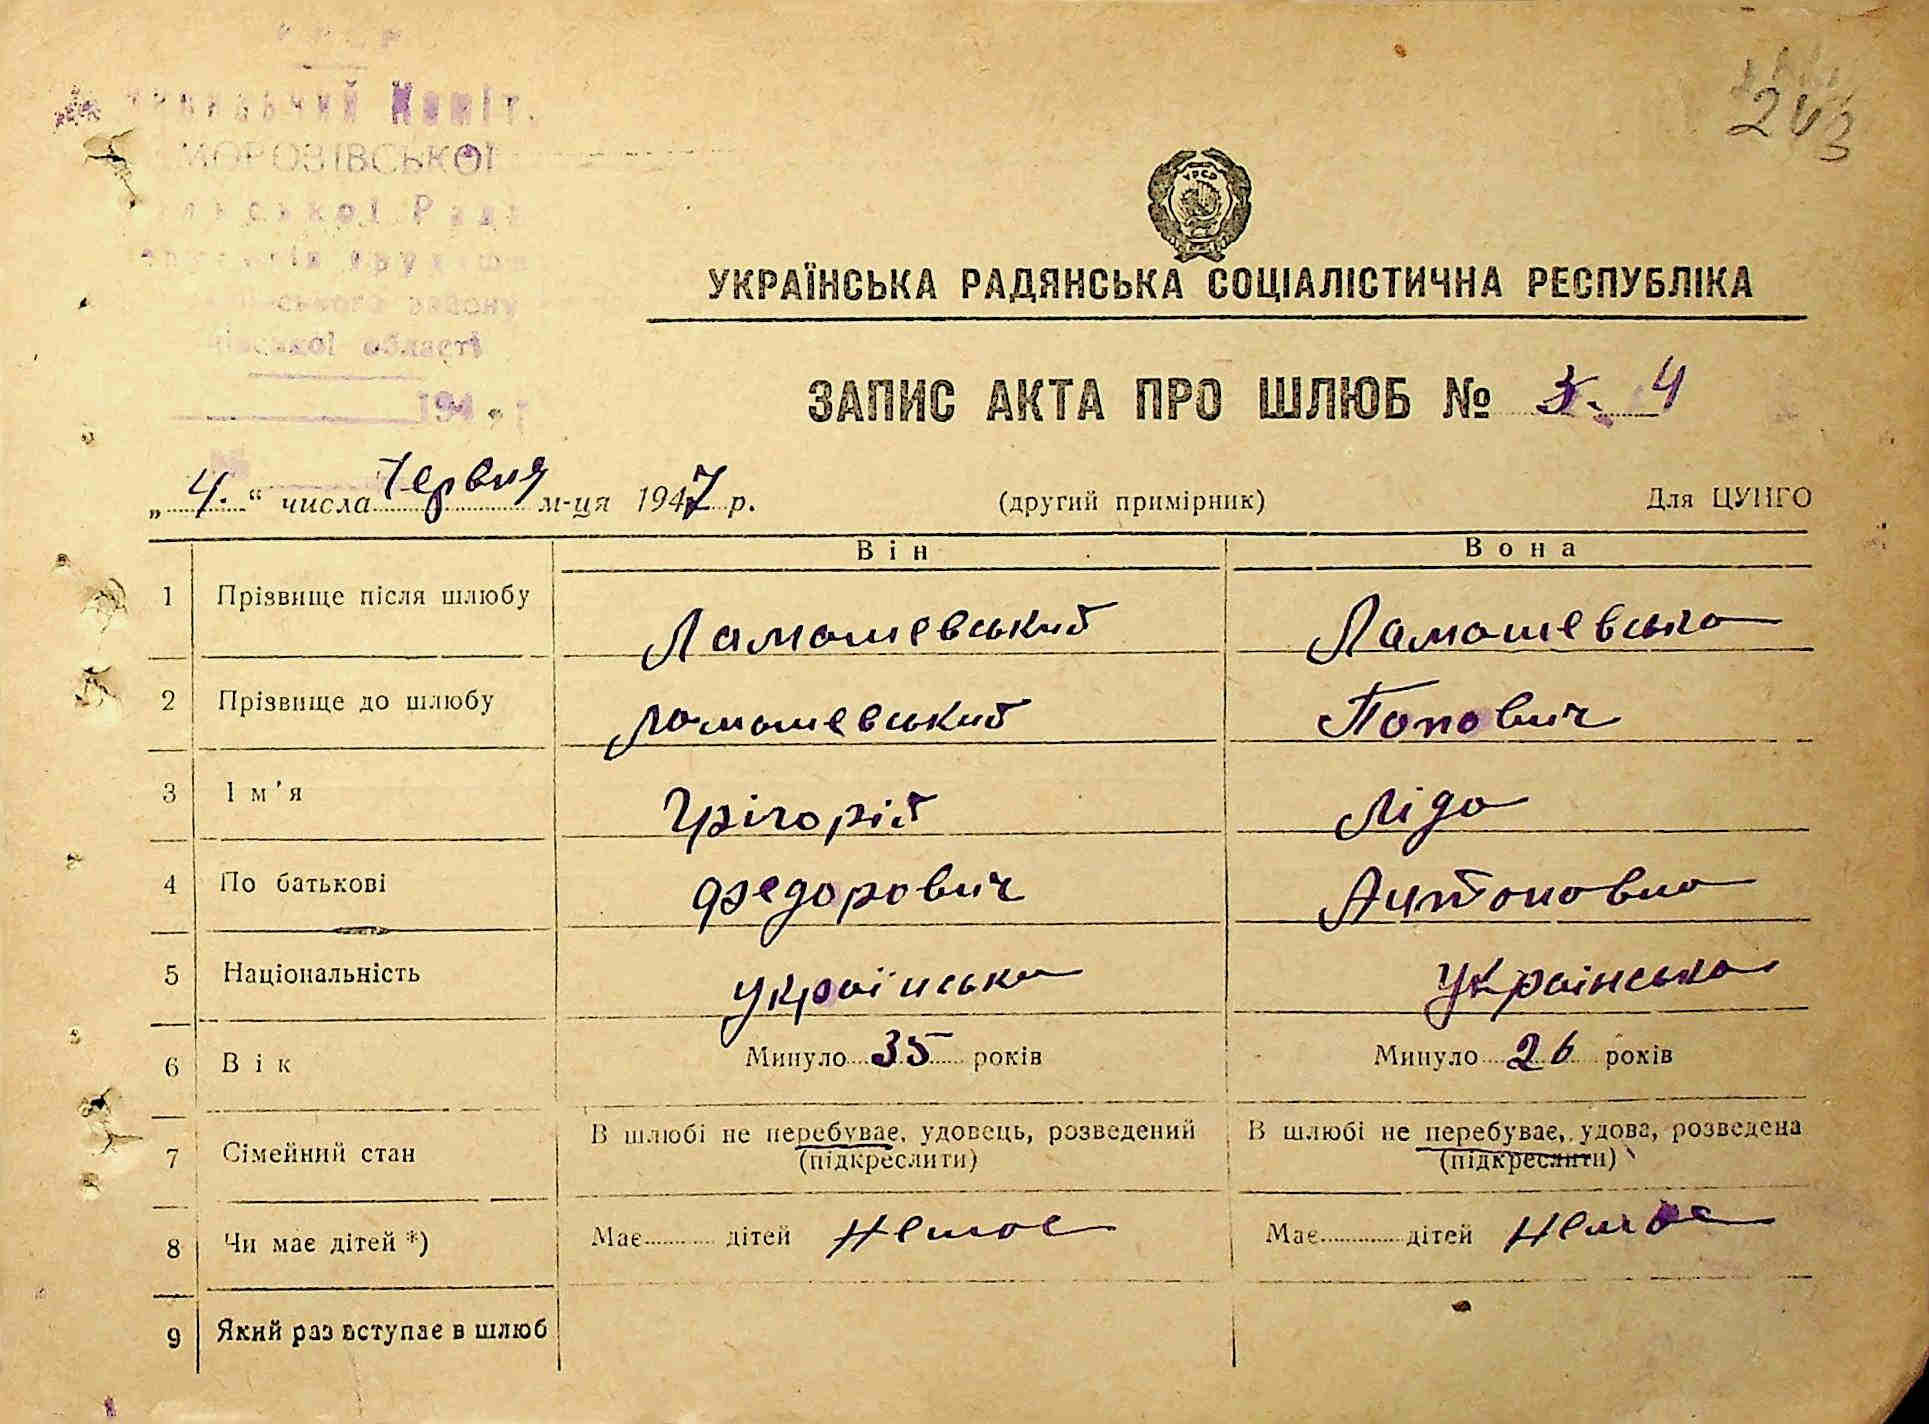 Коміт.
МОРОЗІВСЬКОЇ
району
області
194
263
УРСР
УКРАЇНСЬКА РАДЯНСЬКА СОЦІАЛІСТИЧНА РЕСПУБЛІКА
ЗАПИС АКТА ПРО ШЛЮБ № 4
„4.“ числа Червня м-ця 1947 р. (другий примірник) Для ЦУНГО
Він Вона
1 Прізвище після шлюбу Ламашевський Ламашевська
2 Прізвище до шлюбу Ламашевський Попович
3 Ім'я Грігорій Ліда
4 По батькові Федорович Антоновна
5 Національність українська Українська
6 Вік Минуло 35 років Минуло 26 років
7 Сімейний стан В шлюбі не перебуває, удовець, розведений В шлюбі не перебуває, удова, розведена
(підкреслити) (підкреслити)
8 Чи має дітей *) Має дітей немає Має дітей немає
9 Який раз вступає в шлюб